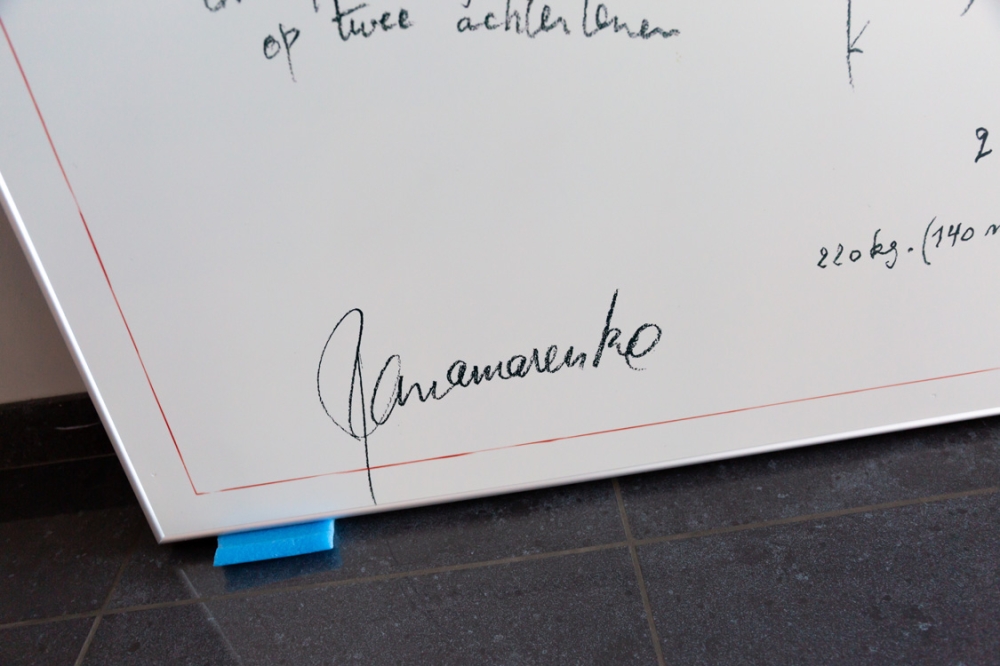 op twee achterbenen
k
2
220 kg. (140
Panamarenko